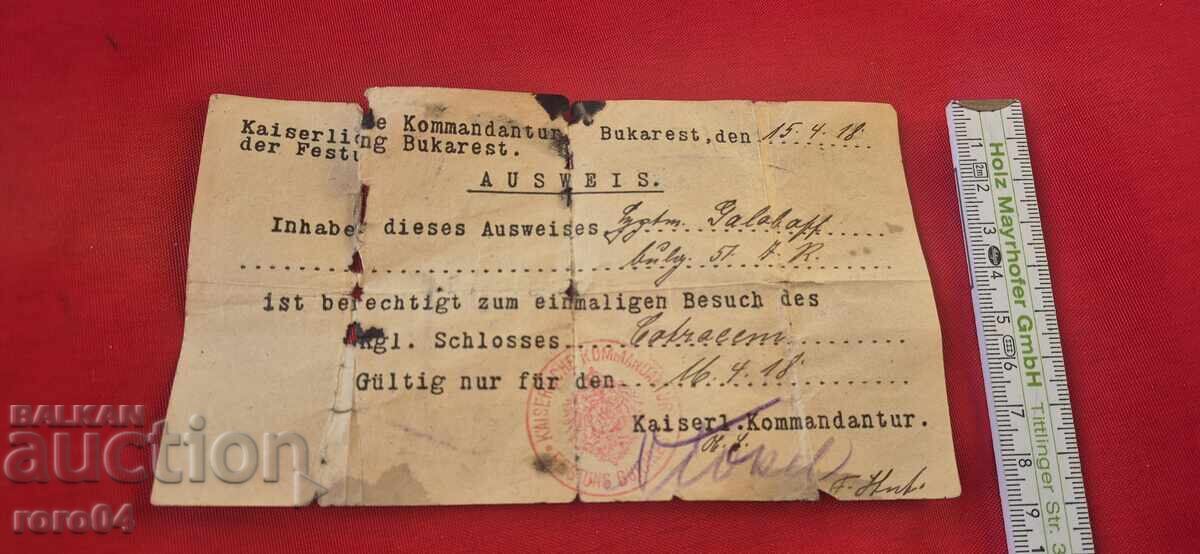 Kaiserliche Kommandantur Bukarest, den 15.4.18.
der Festung Bukarest.
AUSWEIS.
Inhaber dieses Ausweises Galaboff
bulg. 51. I. R.
ist berechtigt zum einmaligen Besuch des
Kgl. Schlosses Cotroceni
Gültig nur für den 16.4.18.
Kaiserl. Kommandantur.
KAISERLICHE KOMMANDANTUR
BALKAN
auction
roro04
Holz Mayrhofer GmbH Tittlinger Str. 3
1 2 3 4 5 6 7 8 9
2m